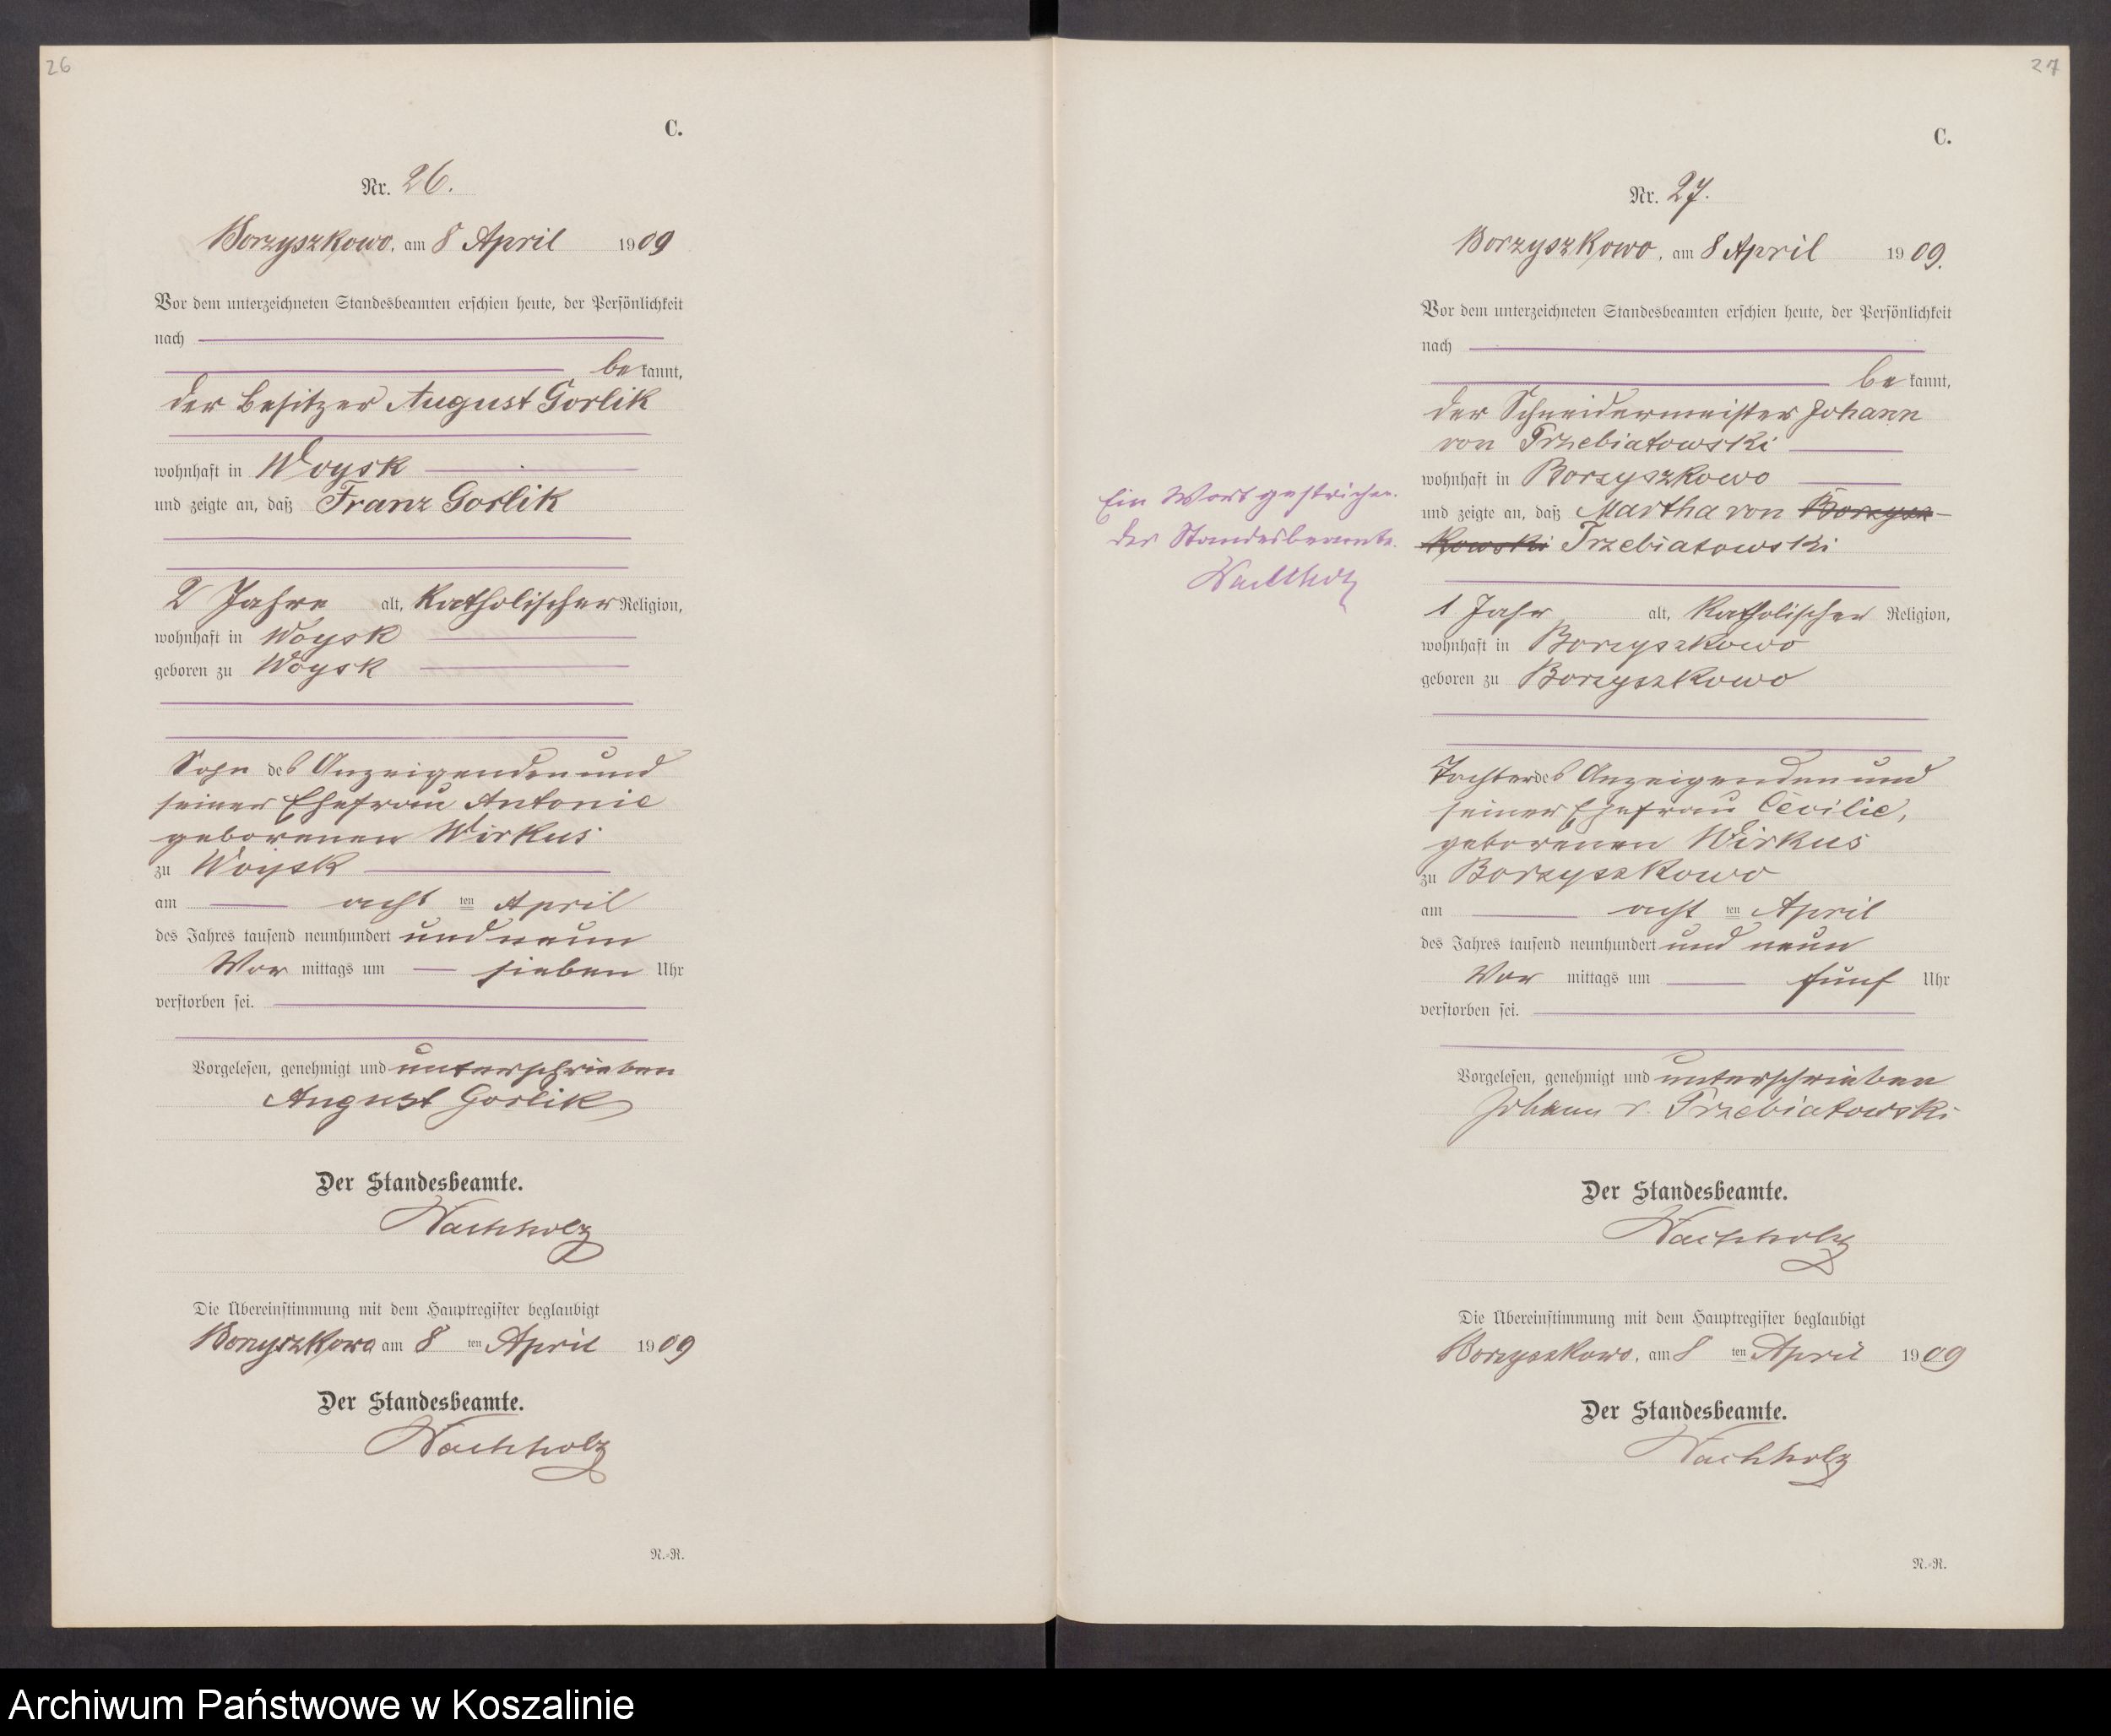 26
C.
Nr. 26.
Borzyszkowo, am 8 April 1909
Vor dem unterzeichneten Standesbeamten erschien heute, der Persönlichkeit
nach
bekannt,
der Besitzer August Gorlik
wohnhaft in Woysk
und zeigte an, daß Franz Gorlik
2 Jahre alt, katholischer Religion,
wohnhaft in Woysk
geboren zu Woysk
Sohn des Anzeigenden und
seiner Ehefrau Antonie
geborenen Wirkus
zu Woysk
am acht ten April
des Jahres tausend neunhundert und neun
Vor mittags um sieben Uhr
verstorben sei.
Vorgelesen, genehmigt und unterschrieben
August Gorlik
Der Standesbeamte.
Wachholz
Die Übereinstimmung mit dem Hauptregister beglaubigt
Borzyszkowo am 8 ten April 1909
Der Standesbeamte.
Wachholz
N.-R.
27
C.
Nr. 27.
Borzyszkowo, am 8 April 1909.
Vor dem unterzeichneten Standesbeamten erschien heute, der Persönlichkeit
nach
bekannt,
der Schneidermeister Johann
von Trzebiatowski
wohnhaft in Borzyszkowo
und zeigte an, daß Martha von Borzysz-
kowski Trzebiatowski
Ein Wort gestrichen.
Der Standesbeamte.
Wachholz
1 Jahr alt, katholischer Religion,
wohnhaft in Borzyszkowo
geboren zu Borzyszkowo
Tochter des Anzeigenden und
seiner Ehefrau Cecilie,
geborenen Wirkus
zu Borzyszkowo
am acht ten April
des Jahres tausend neunhundert und neun
Vor mittags um fünf Uhr
verstorben sei.
Vorgelesen, genehmigt und unterschrieben
Johann v. Trzebiatowski
Der Standesbeamte.
Wachholz
Die Übereinstimmung mit dem Hauptregister beglaubigt
Borzyszkowo, am 8 ten April 1909
Der Standesbeamte.
Wachholz
N.-R.
Archiwum Państwowe w Koszalinie